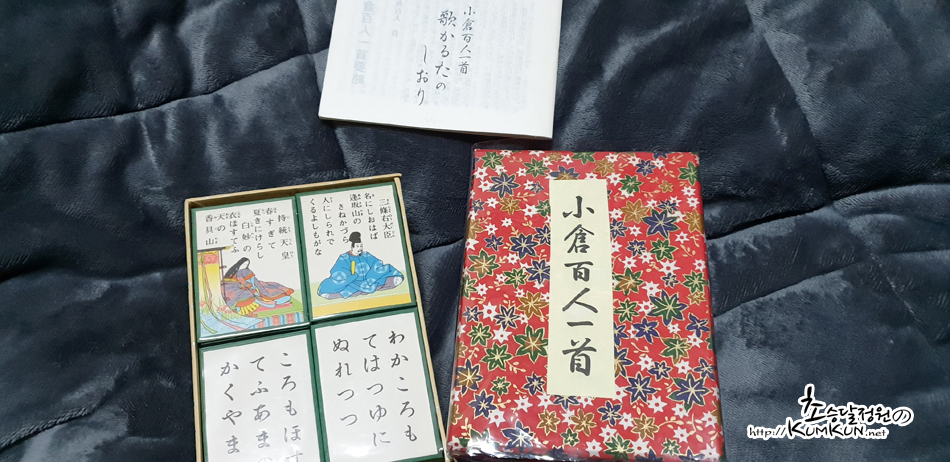 小倉百人一首
歌かるたの
しおり
小倉百人一首
三條右大臣
名にしおはば
逢坂山の
さねかづら
人にしられで
くるよしもがな
持統天皇
春すぎて
夏きにけらし
白妙の
衣ほすてふ
天の
香具山
わかころも
てはつゆに
ぬれつつ
ころもほす
てふあまの
かくやま
초승달정원の
http://KUMKUN.net